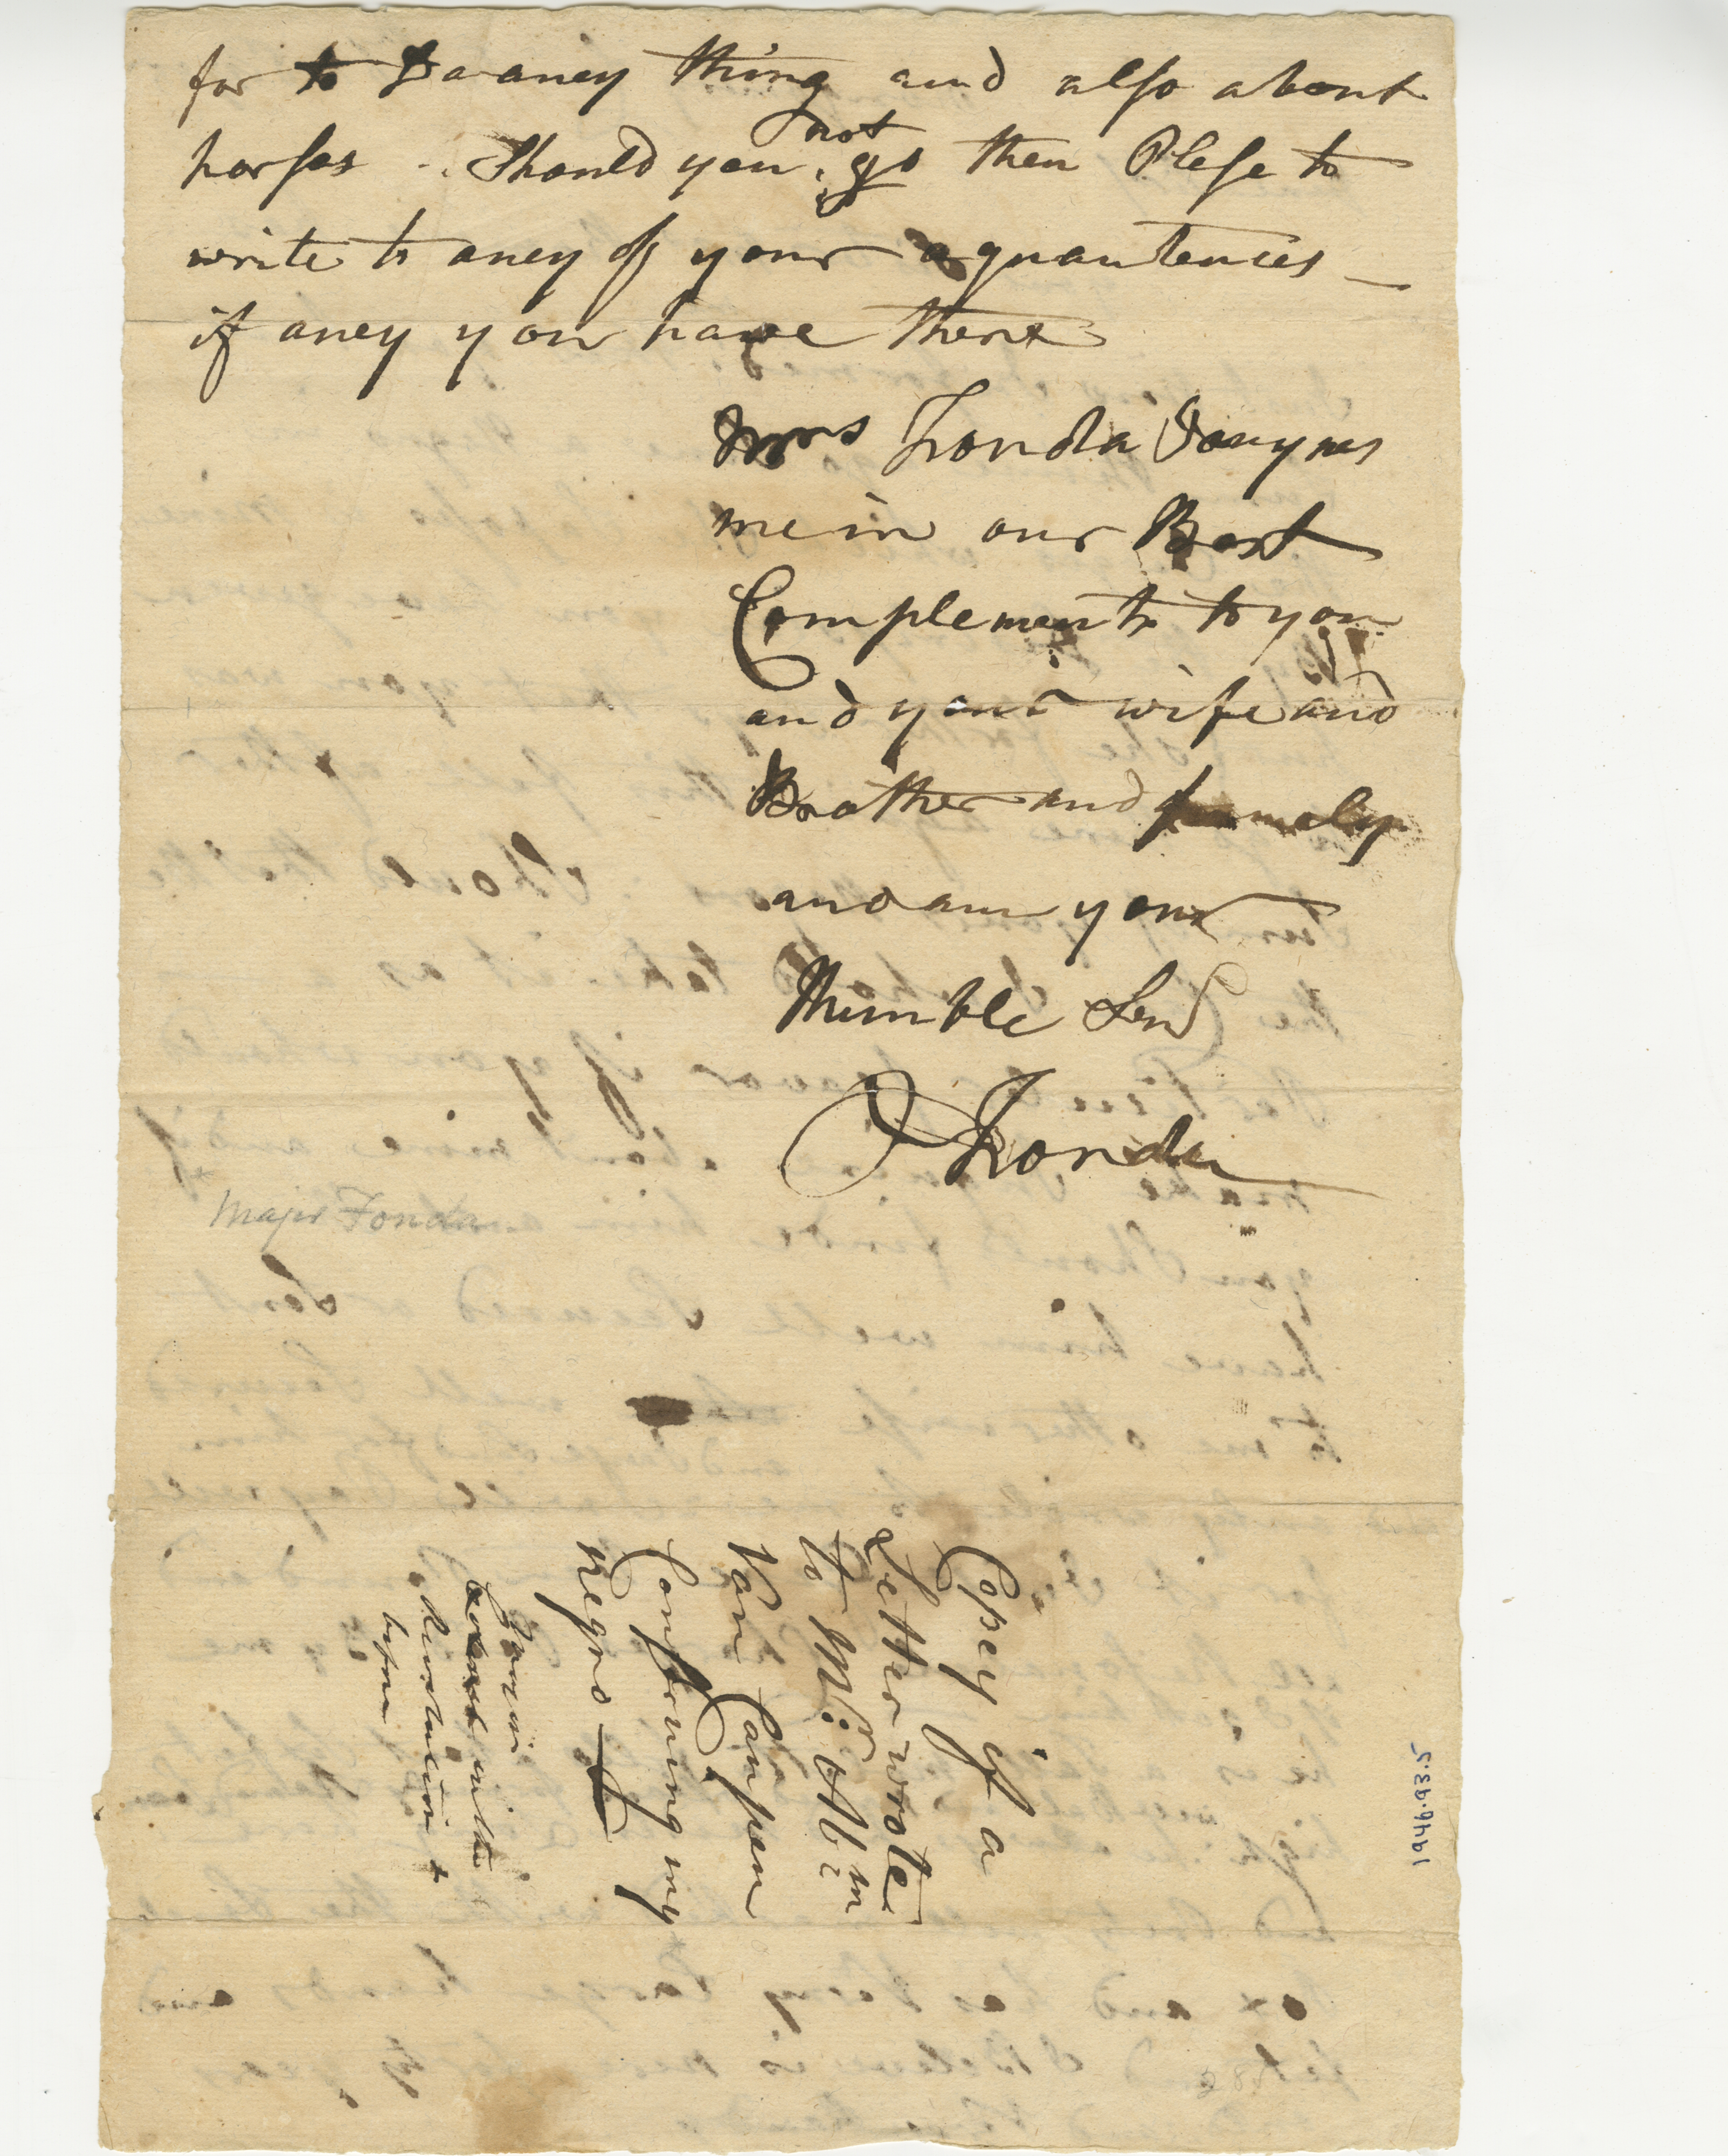 for to Do aney thing and also about
horses . Should you not go then Plese to
write to aney of your aquantences
if aney you have there
Mrs Fonda Jouynes
me in our Best
Complements to you
and your wife and
Brother and famely
and am your
Humble Serv
J Fonda
Major Fonda
Copey of a
Letter wrote
to Mr. Abm
Van Campen
Conserning my
Negro
in the
Revolution &
before
1946.93.5